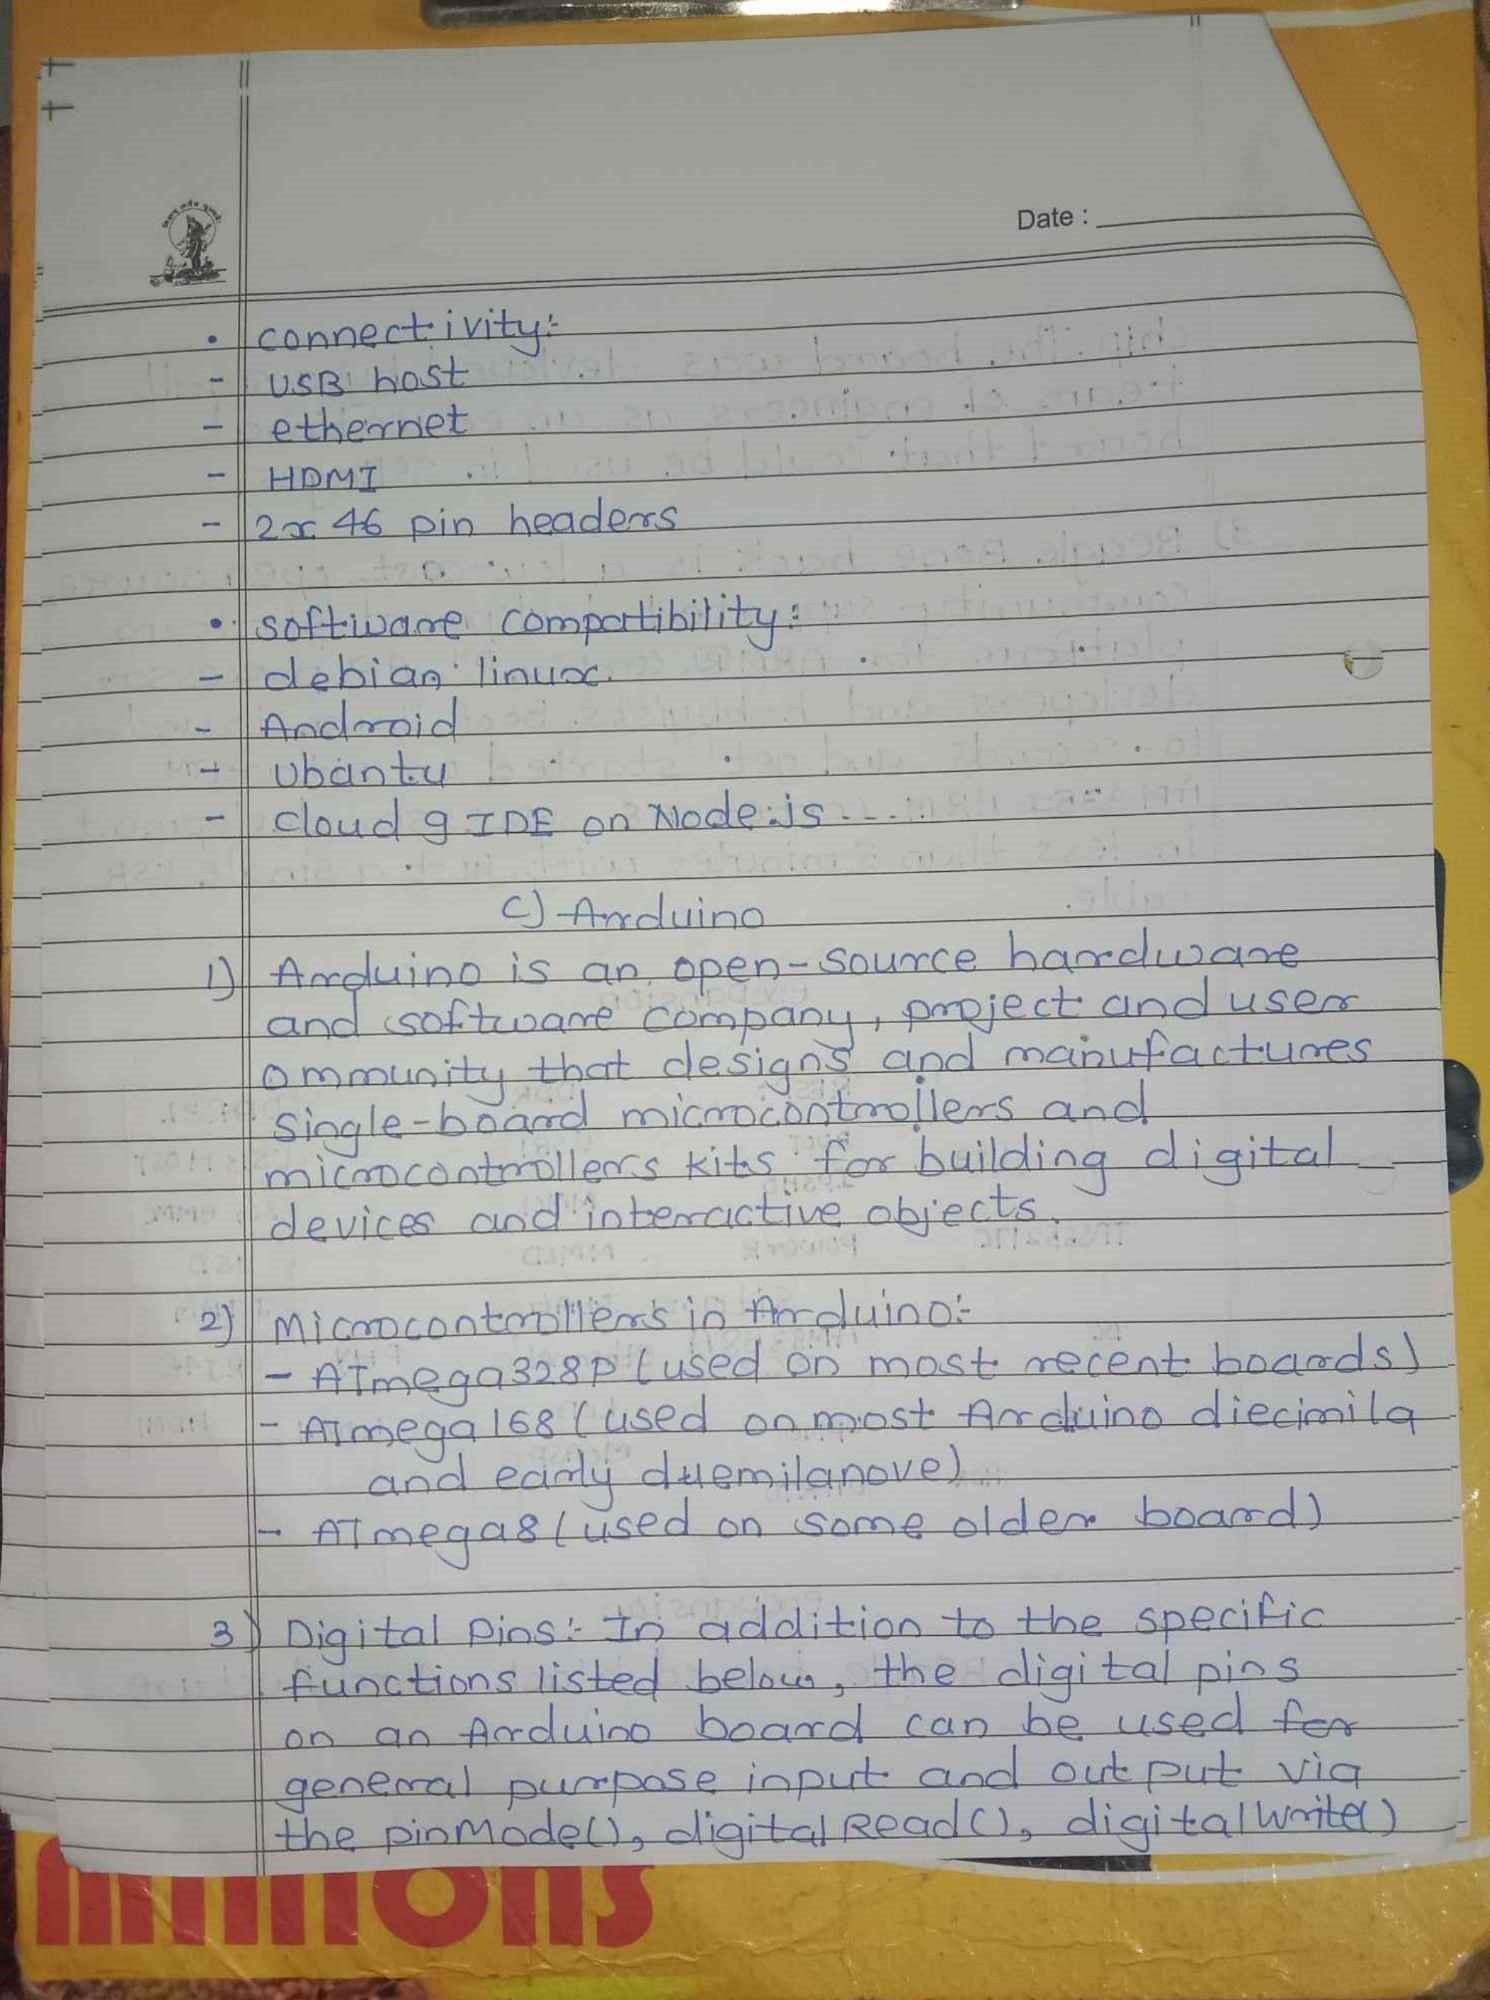 Date :
• connectivity:-
- USB host
- ethernet
- HDMI
- 2x 46 pin headers
• software compatibility:
- debian linux
- Android
- Ubantu
- cloud 9 IDE on Node.js....
C) Arduino
1) Arduino is an open-source hardware
and software company, project and user
ommunity that designs and manufactures
single-board microcontrollers and
microcontrollers kits for building digital
devices and interactive objects.
2) Microcontrollers in Arduino:-
- ATmega328P (used on most recent boards)
- ATmega168 (used on most Arduino diecimila
and early duemilanove)
- ATmega8 (used on some older board)
3) Digital Pins:- In addition to the specific
functions listed below, the digital pins
on an Arduino board can be used for
general purpose input and output via
the pinMode(), digitalRead(), digitalWrite()
minions